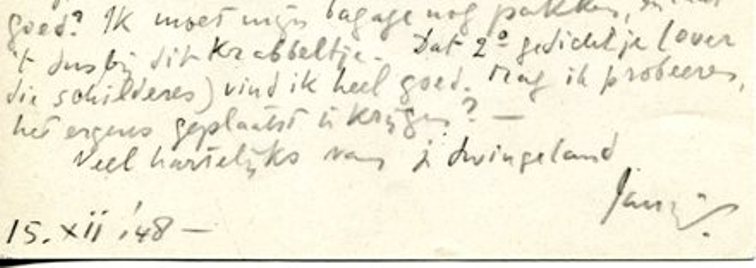 goed? Ik moet mijn bagage nog pakken,
't dus bij dit krabbeltje. Dat 2º gedichtje (over
die schilderes) vind ik heel goed. Mag ik probeeren,
het ergens geplaatst te krijgen? —
Veel hartelijks van je dwingeland
15.XII.'48 —